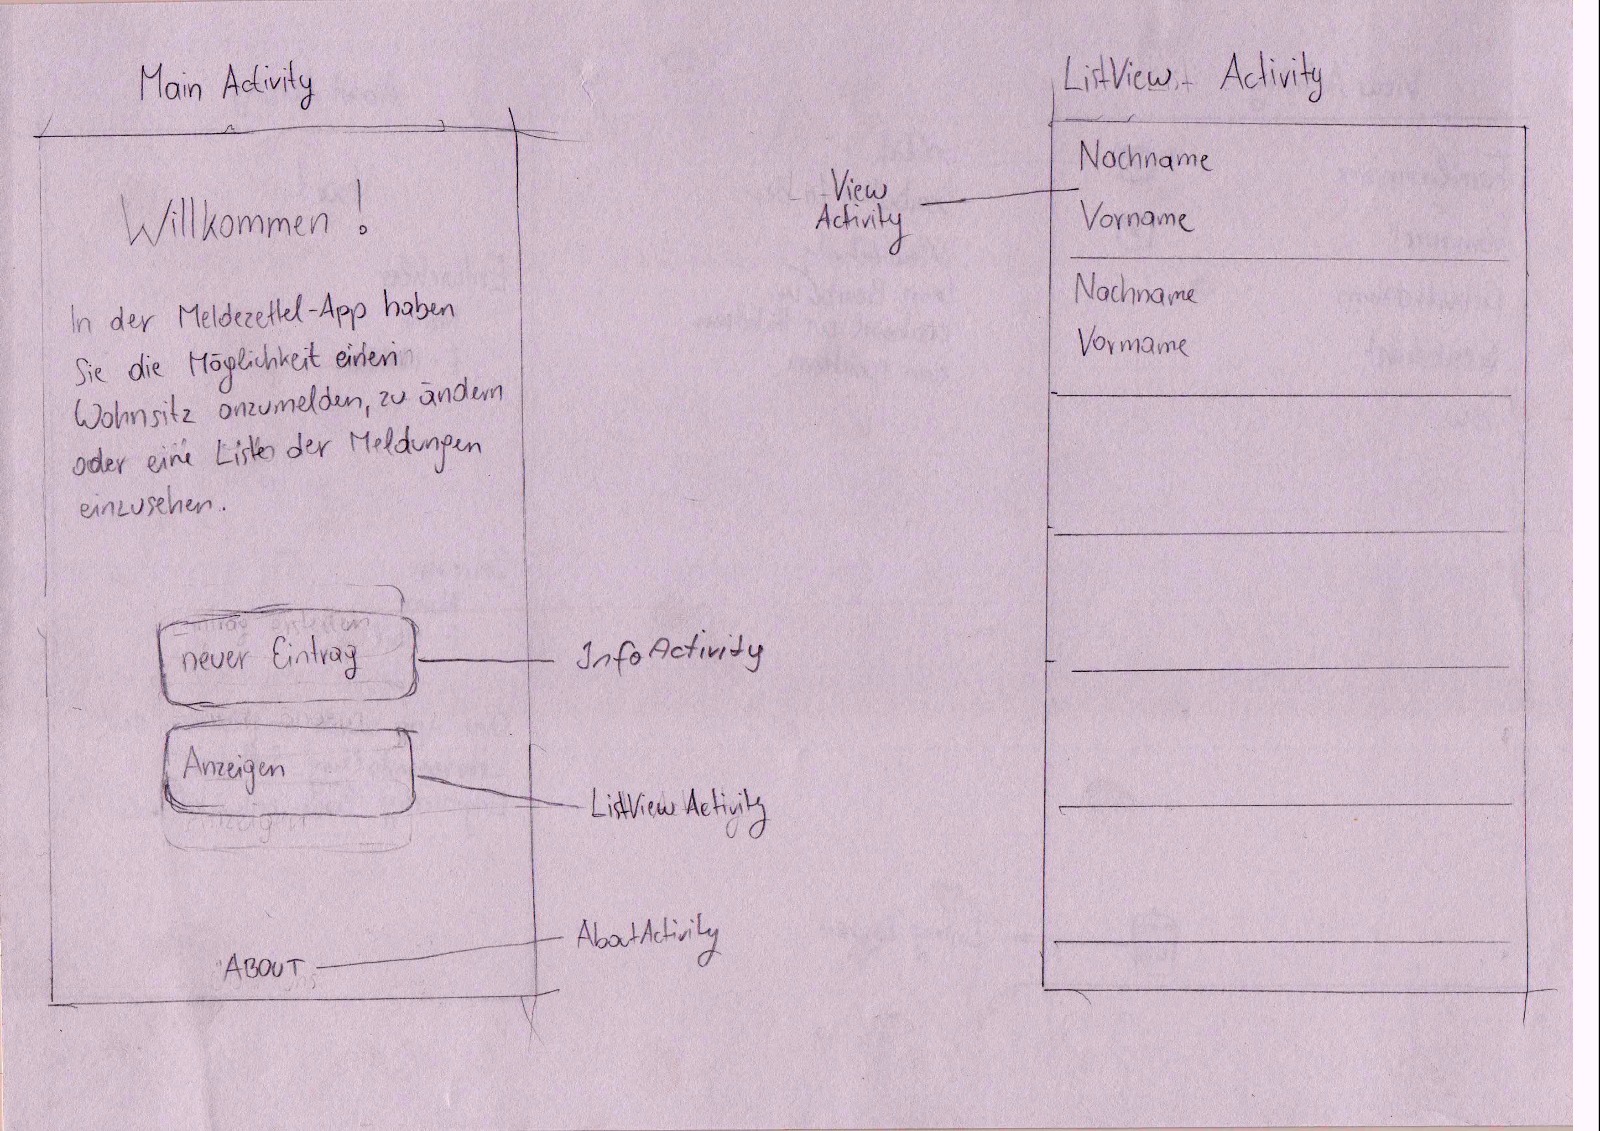 Main Activity
Willkommen!
In der Meldezettel-App haben
Sie die Möglichkeit einen
Wohnsitz anzumelden, zu ändern
oder eine Liste der Meldungen
einzusehen.
neuer Eintrag
InfoActivity
Anzeigen
ListViewActivity
ABOUT
AboutActivity
ListView Activity
View
Activity
Nachname
Vorname
Nachname
Vorname